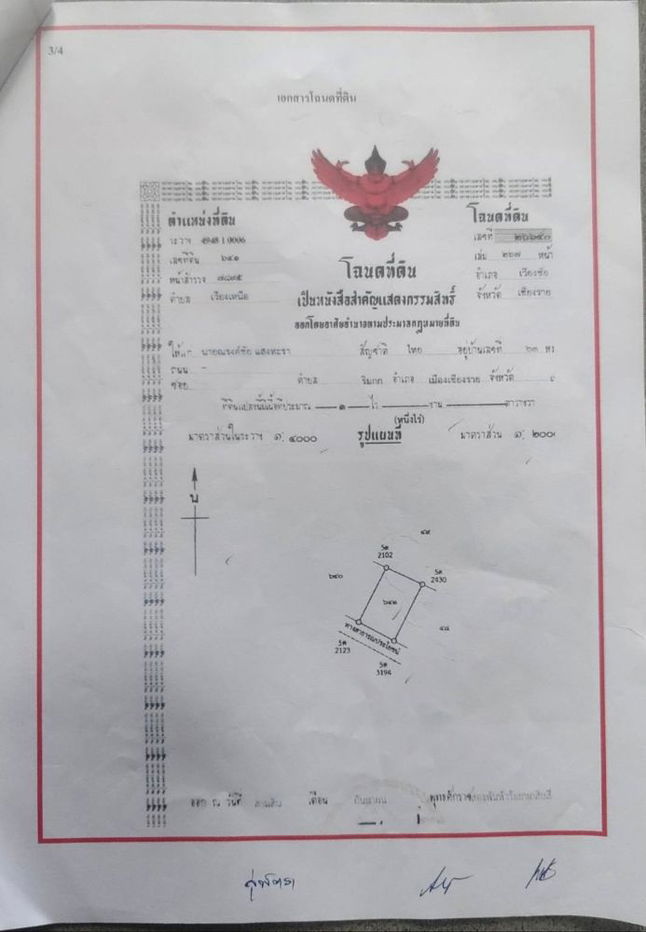 3/4
เอกสารโฉนดที่ดิน
ตำแหน่งที่ดิน
ระวาง 4948 I 0006
เลขที่ดิน ๖๔๑
หน้าสำรวจ
ตำบล เวียงเหนือ
โฉนดที่ดิน
เลขที่
เล่ม ๒๖๗ หน้า
อำเภอ เวียงชัย
จังหวัด เชียงราย
โฉนดที่ดิน
เป็นหนังสือสำคัญแสดงกรรมสิทธิ์
ออกโดยอาศัยอำนาจตามประมวลกฎหมายที่ดิน
ให้แก่ นายณรงค์ชัย สัญชาติ ไทย อยู่บ้านเลขที่ ๒๓
ถนน -
ซอย ตำบล ริมกก อำเภอ เมืองเชียงราย จังหวัด
ที่ดินแปลงนี้มีเนื้อที่ประมาณ ๑ ไร่ งาน ตารางวา
(หนึ่งไร่)
มาตราส่วนในระวาง ๑: ๔๐๐๐ รูปแผนที่ มาตราส่วน ๑: ๒๐๐๐
น
๔๕
5ต
2102
5ต
2430
๖๔๐
๖๔๑
๔๘
ทางสาธารณประโยชน์
5ต
2123
5ต
3194
ออก ณ วันที่ เดือน กันยายน พุทธศักราช